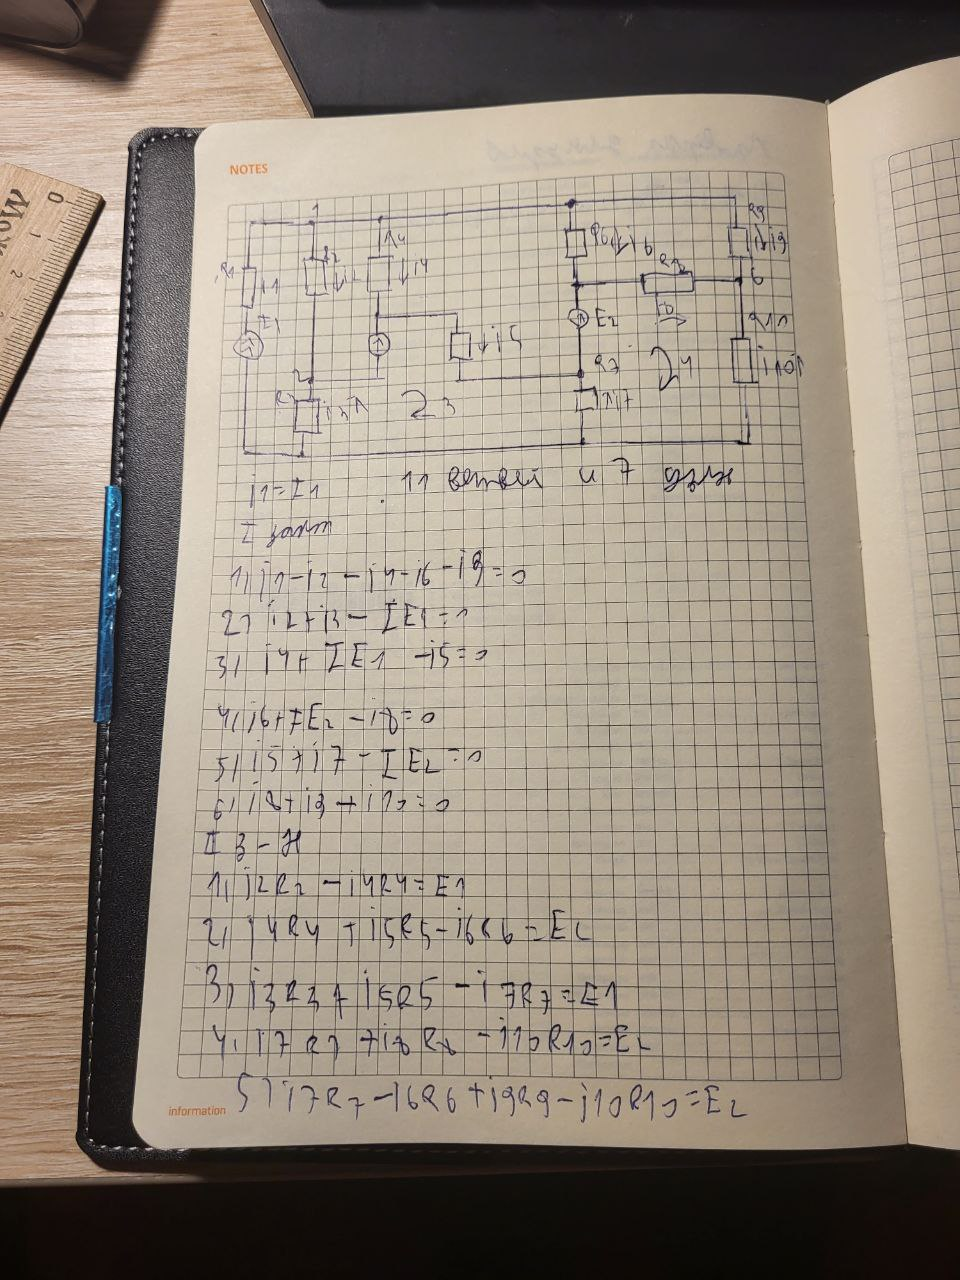 NOTES
1
R1 i1 R2 i2 R4 i4 R6 i6 R8 R9 i9
6
I1 i5 E2 I8 R10
2 R7 4 i10
R3 i3 3 i7
j1=I1 11 ветвей и 7 узлов
I закон
1) j1-i2-i4-i6-i9=0
2) i2+i3-IE1=0
3) i4+IE1-i5=0
4) i6+IE2-i8=0
5) i5+i7-IE2=0
6) i8+i9+i10=0
II З-Н
1) i2R2-i4R4=E1
2) i4R4+i5R5-i6R6=E2
3) i3R3+i5R5-i7R7=E1
4) i7R7+i8R8-i10R10=E2
5) i7R7-i6R6+i9R9-i10R10=E2
information
Мож
0 1 2